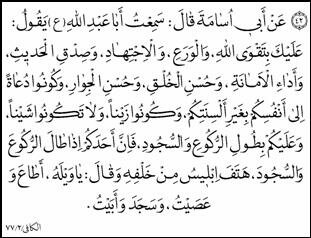 ٤٣ عَنْ أَبِي أُسَامَةَ قَالَ: سَمِعْتُ أَبَا عَبْدِ اللهِ (ع) يَقُولُ:
عَلَيْكَ بِتَقْوَى اللهِ، وَالْوَرَعِ، وَالِاجْتِهَادِ، وَصِدْقِ الْحَدِيثِ،
وَأَدَاءِ الْأَمَانَةِ، وَحُسْنِ الْخُلُقِ، وَحُسْنِ الْجِوَارِ، وَكُونُوا دُعَاةً
إِلَى أَنْفُسِكُمْ بِغَيْرِ أَلْسِنَتِكُمْ، وَكُونُوا زَيْنًا، وَلَا تَكُونُوا شَيْنًا،
وَعَلَيْكُمْ بِطُولِ الرُّكُوعِ وَالسُّجُودِ، فَإِنَّ أَحَدَكُمْ إِذَا طَالَ الرُّكُوعَ
وَالسُّجُودَ، هَتَفَ إِبْلِيسُ مِنْ خَلْفِهِ وَقَالَ: يَا وَيْلَهُ، أَطَاعَ وَ
عَصَيْتُ، وَسَجَدَ وَأَبَيْتُ.
الكافي ٢/٧٧